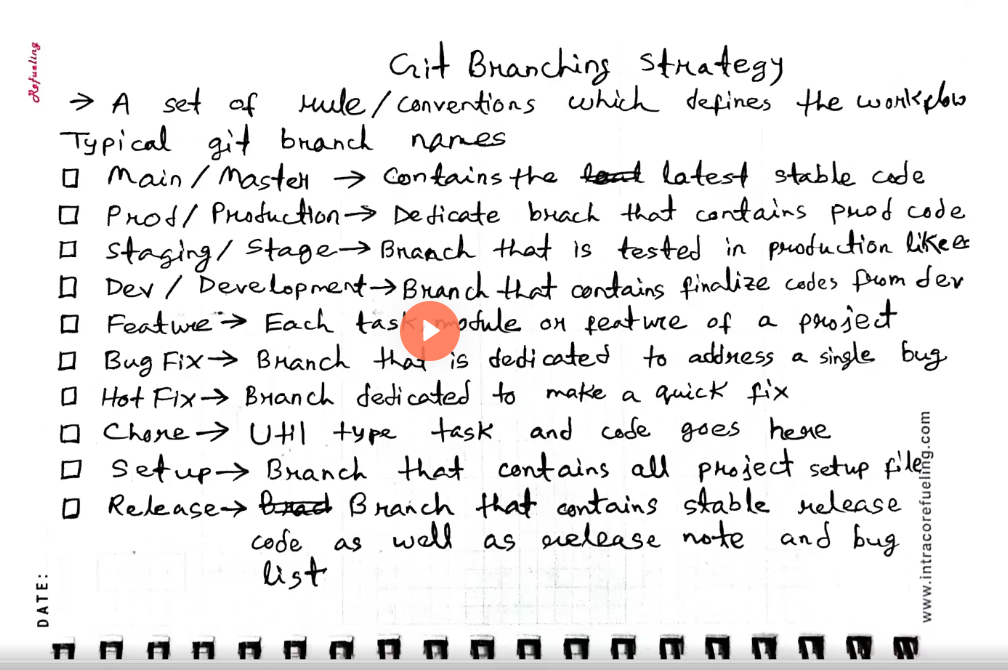 Refueling
Git Branching Strategy
→ A set of rule/conventions which defines the workflow
Typical git branch names
□ Main/Master → Contains the latest stable code
□ Prod/Production → Dedicate brach that contains prod code
□ Staging/Stage → Branch that is tested in production like
□ Dev/Development → Branch that contains finalize codes from dev
□ Feature → Each task, module or feature of a project
□ Bug Fix → Branch that is dedicated to address a single bug
□ Hot Fix → Branch dedicated to make a quick fix
□ Chore → Util type task and code goes here
□ Setup → Branch that contains all project setup file
□ Release → Branch that contains stable release
code as well as release note and bug
list
DATE:
www.intracorefueling.com